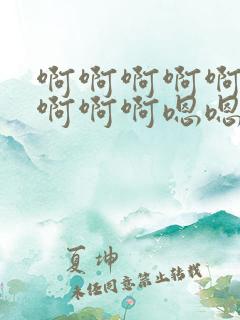 啊啊啊啊啊
啊啊啊嗯嗯
夏坤
未经同意禁止转载